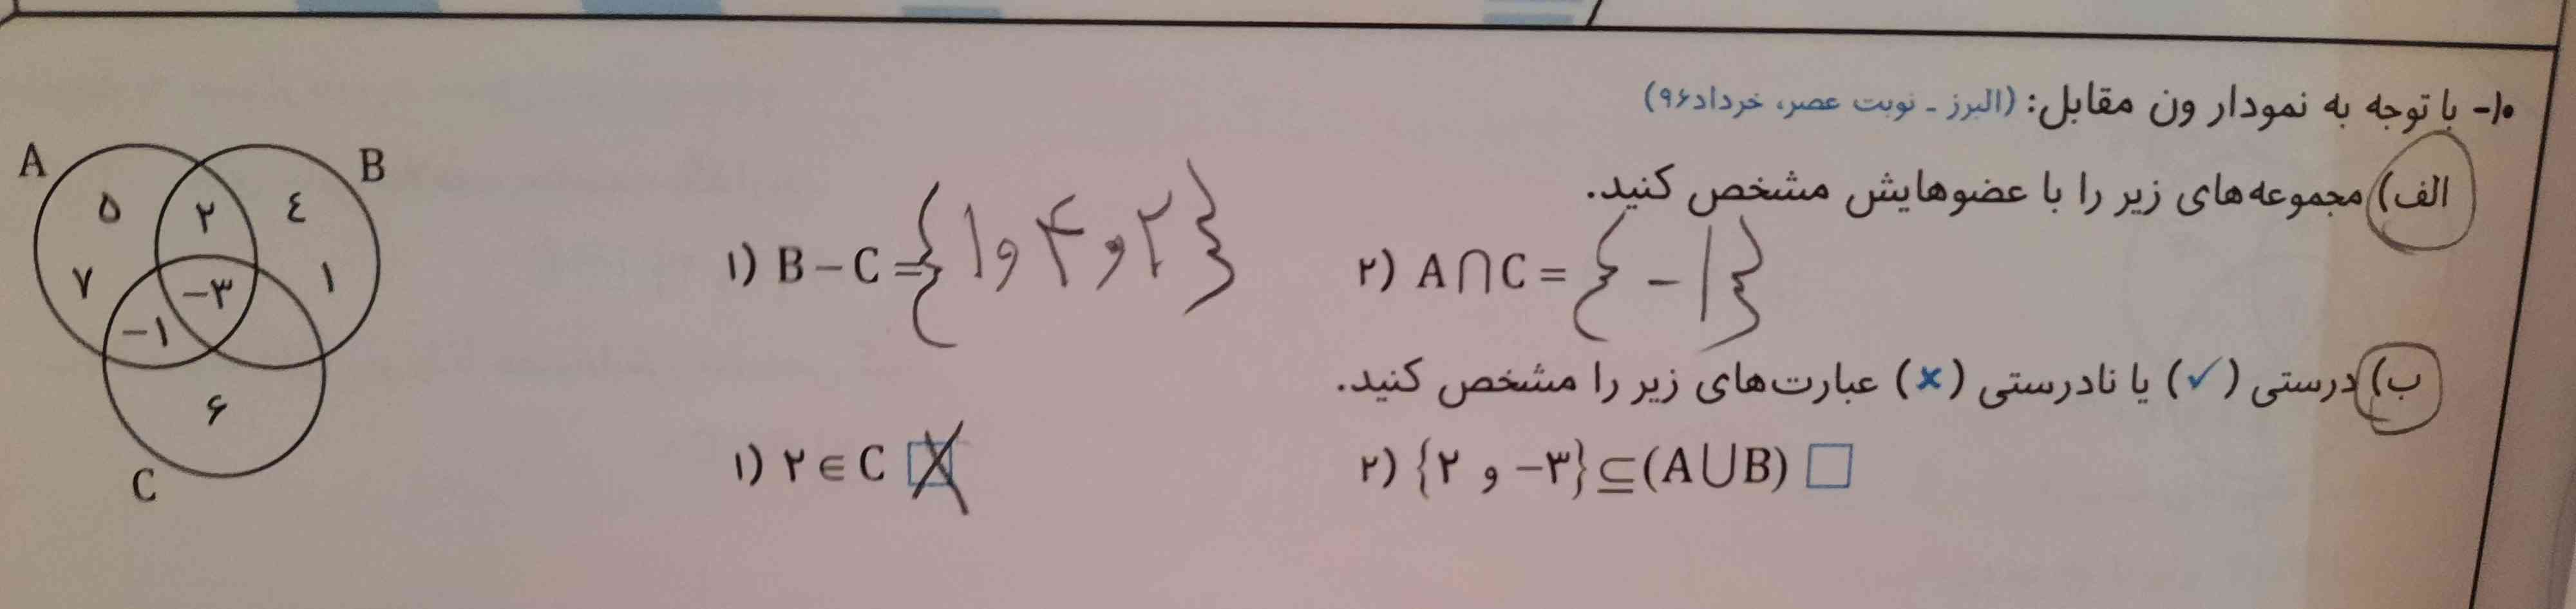 ۱۰- با توجه به نمودار ون مقابل: (البرز ـ نوبت عصر، خرداد ۹۶)
الف) مجموعه‌های زیر را با عضوهایش مشخص کنید.
۱) B − C = {۱ و ۴ و ۲}
۲) A ∩ C = {−۱}
ب) درستی (✓) یا نادرستی (×) عبارت‌های زیر را مشخص کنید.
۱) ۲ ∈ C ☒
۲) {۲ و −۳} ⊆ (A ∪ B) □
A B
۵ ۲ ٤
۷ −۳ ۱
−۱
۶
C